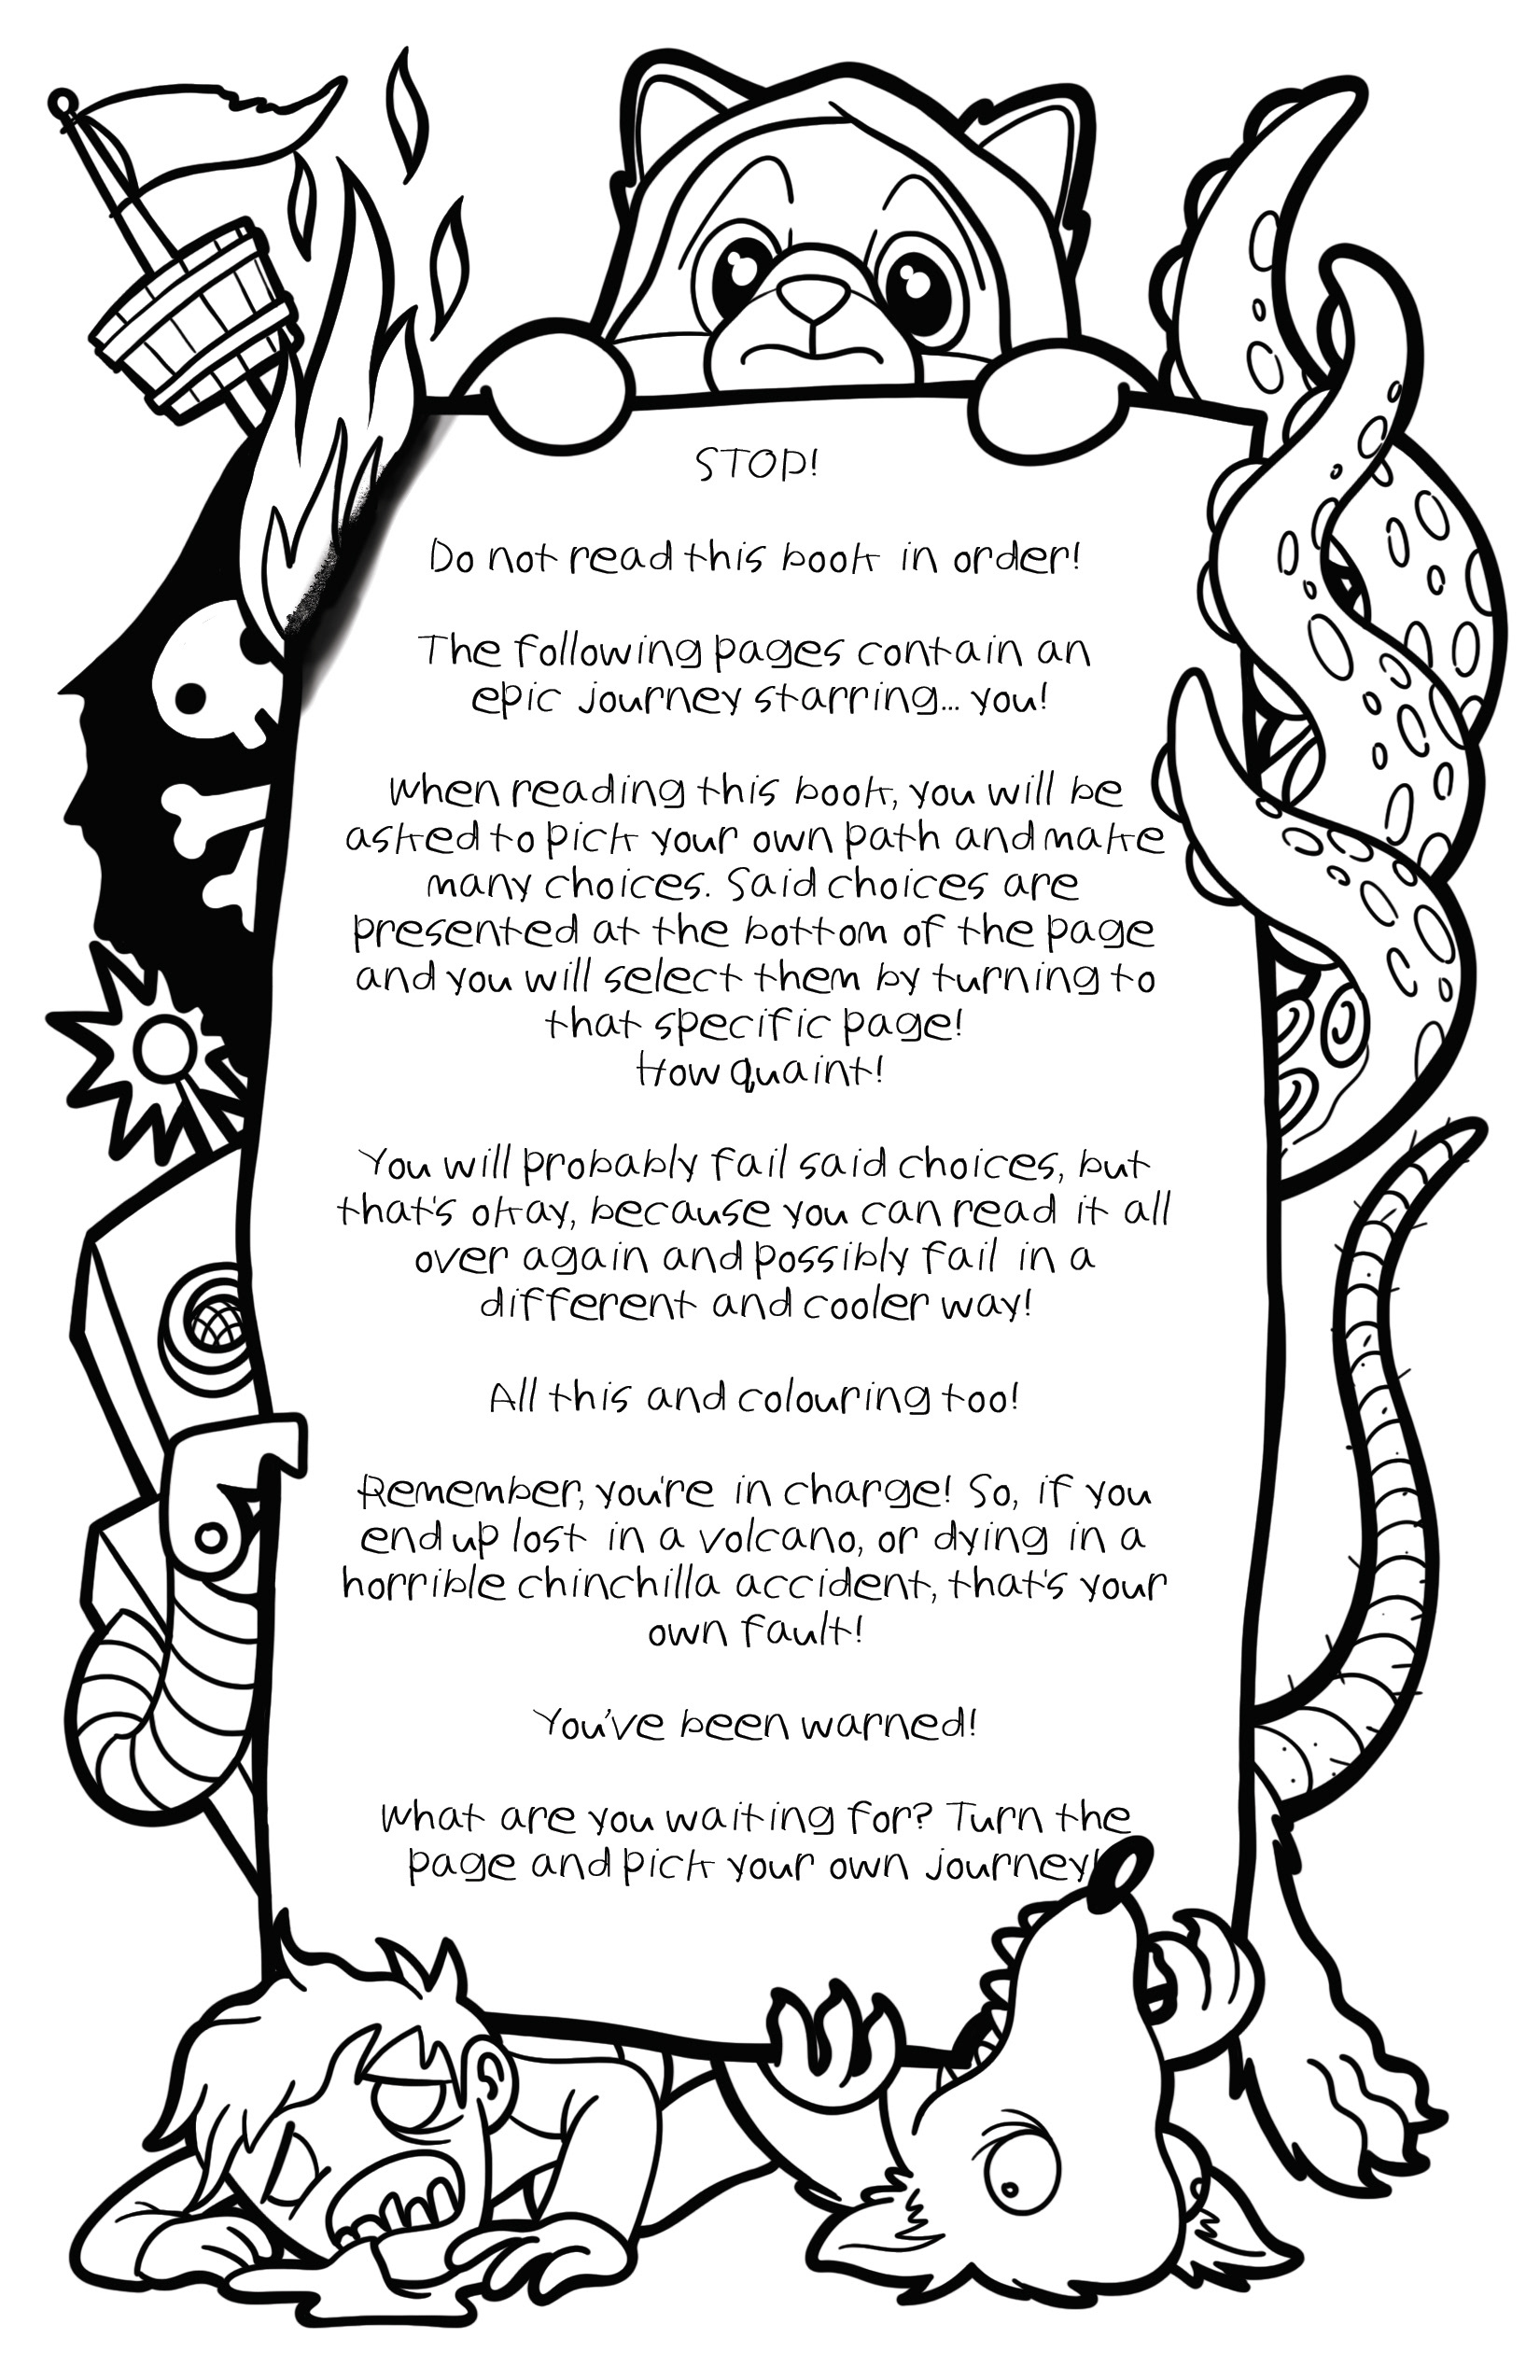 STOP!
Do not read this book in order!
The following pages contain an
epic journey starring... you!
When reading this book, you will be
asked to pick your own path and make
many choices. Said choices are
presented at the bottom of the page
and you will select them by turning to
that specific page!
How quaint!
You will probably fail said choices, but
that's okay, because you can read it all
over again and possibly fail in a
different and cooler way!
All this and colouring too!
Remember, you're in charge! So, if you
end up lost in a volcano, or dying in a
horrible chinchilla accident, that's your
own fault!
You've been warned!
What are you waiting for? Turn the
page and pick your own journey!